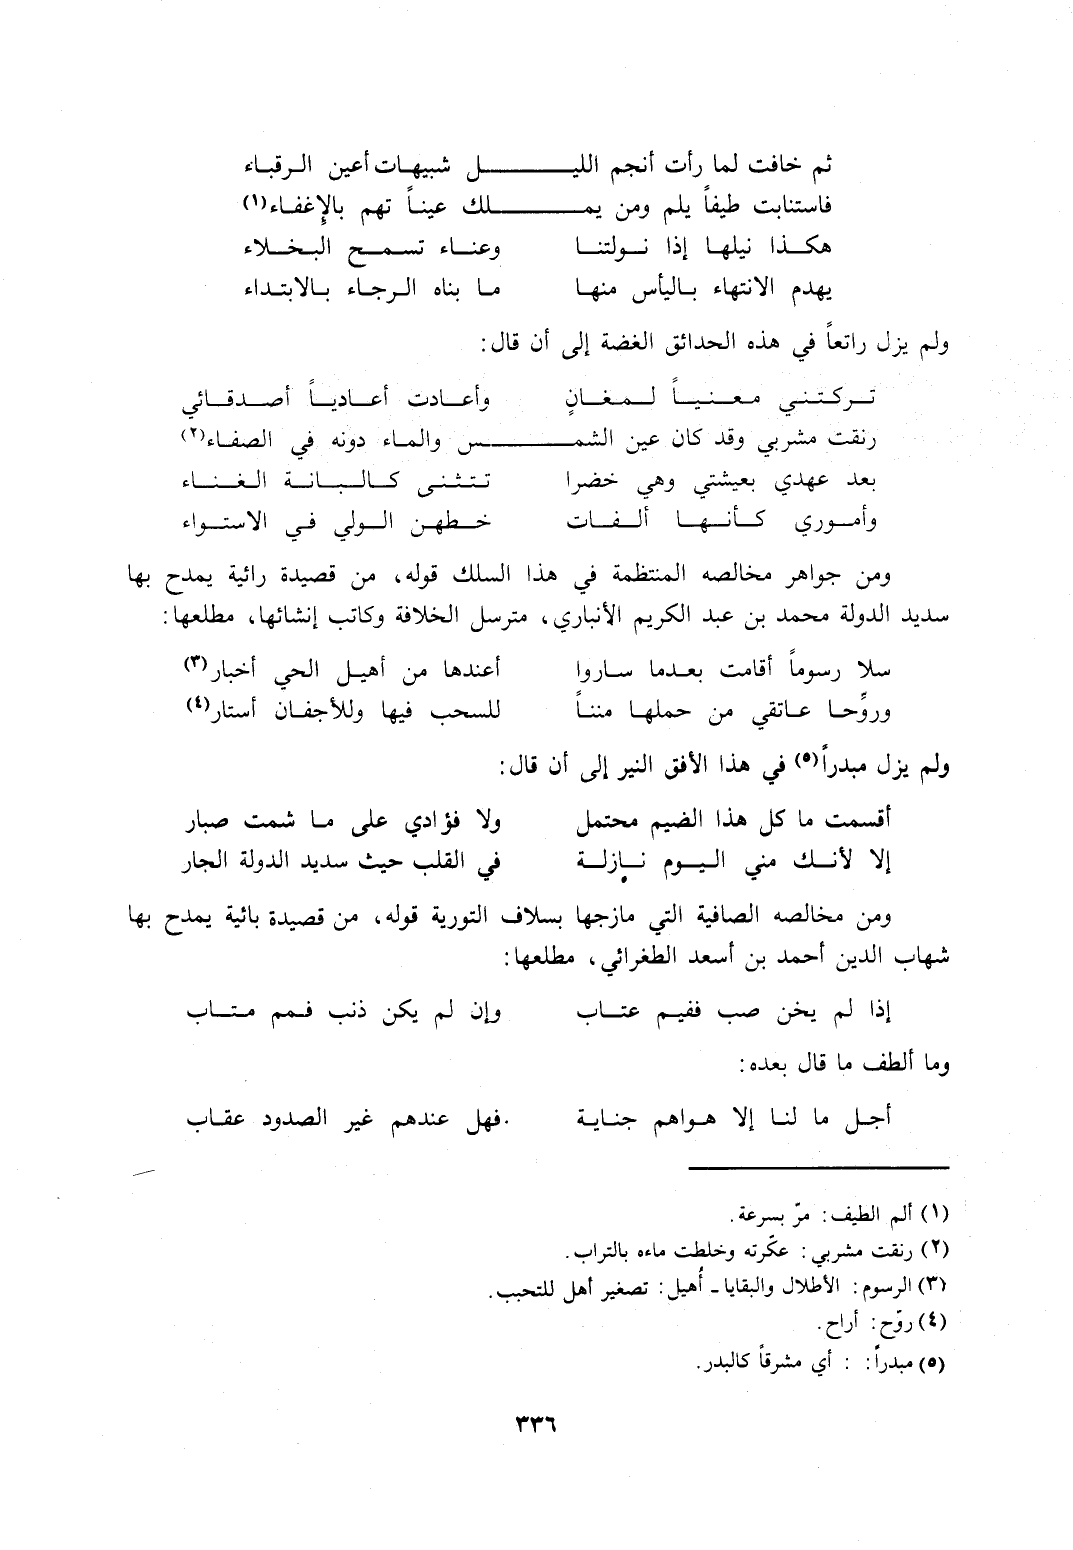 ثم خافت لما رأت أنجم الليـ ـل شبيهات أعين الرقباء
فاستنابت طيفاً يلم ومن يمـ ـلك عيناً تهم بالإغفاء(١)
هكذا نيلها إذا نولتنا وعناء تسمح البخلاء
يهدم الانتهاء باليأس منها ما بناه الرجاء بالابتداء
ولم يزل راتعاً في هذه الحدائق الغضة إلى أن قال:
تركتني معنياً لمغانٍ وأعادت أعادياً أصدقائي
رنقت مشربي وقد كان عين الشمـ ـس والماء دونه في الصفاء(٢)
بعد عهدي بعيشتي وهي خضرا تتثنى كالبانة الغناء
وأموري كأنها ألفات خطهن الولي في الاستواء
ومن جواهر مخالصه المنتظمة في هذا السلك قوله، من قصيدة رائية يمدح بها
سديد الدولة محمد بن عبد الكريم الأنباري، مترسل الخلافة وكاتب إنشائها، مطلعها:
سلا رسوماً أقامت بعدما ساروا أعندها من أهيل الحي أخبار(٣)
وروِّحا عاتقي من حملها مننا للسحب فيها وللأجفان أستار(٤)
ولم يزل مبدراً(٥) في هذا الأفق النير إلى أن قال:
أقسمت ما كل هذا الضيم محتمل ولا فؤادي على ما شمت صبار
إلا لأنك مني اليوم نازلة في القلب حيث سديد الدولة الجار
ومن مخالصه الصافية التي مازجها بسلاف التورية قوله، من قصيدة بائية يمدح بها
شهاب الدين أحمد بن أسعد الطغرائي، مطلعها:
إذا لم يخن صب ففيم عتاب وإن لم يكن ذنب فمم متاب
وما ألطف ما قال بعده:
أجل ما لنا إلا هواهم جناية فهل عندهم غير الصدود عقاب
(١) ألم الطيف: مرّ بسرعة.
(٢) رنقت مشربي: عكّرته وخلطت ماءه بالتراب.
(٣) الرسوم: الأطلال والبقايا ـ أُهيل: تصغير أهل للتحبب.
(٤) روّح: أراح.
(٥) مبدراً: : أي مشرقاً كالبدر.
٣٣٦